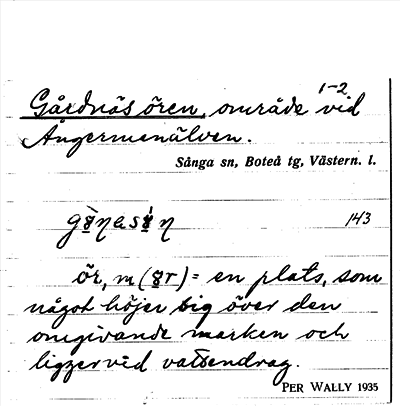 1-2
Gårdnäsören, område vid
Ångermanälven.
Sånga sn, Boteå tg, Västern. l.
143
ör, m (
) = en plats, som
något höjer sig över den
omgivande marken och
ligger vid vattendrag.
PER WALLY 1935